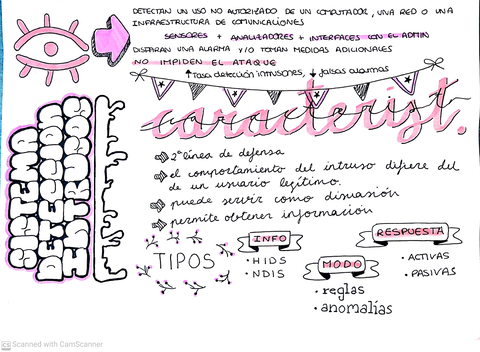 DETECTAN UN USO NO AUTORIZADO DE UN COMPUTADOR, UNA RED O UNA
INFRAESTRUCTURA DE COMUNICACIONES
SENSORES + ANALIZADORES + INTERFACES CON EL ADMIN
DISPARAN UNA ALARMA Y/O TOMAN MEDIDAS ADICIONALES
NO IMPIDEN EL ATAQUE
↑ Tasa detección intrusiones, ↓ falsas alarmas
SISTEMA
DETECCIÓN
INTRUSOS
caracterist.
⇒ 2ª línea de defensa
⇒ el comportamiento del intruso difiere del
de un usuario legítimo.
⇒ puede servir como disuasión
⇒ permite obtener información
TIPOS
INFO
· HIDS
· NDIS
MODO
· reglas
· anomalías
RESPUESTA
· ACTIVAS
· PASIVAS
CS Scanned with CamScanner